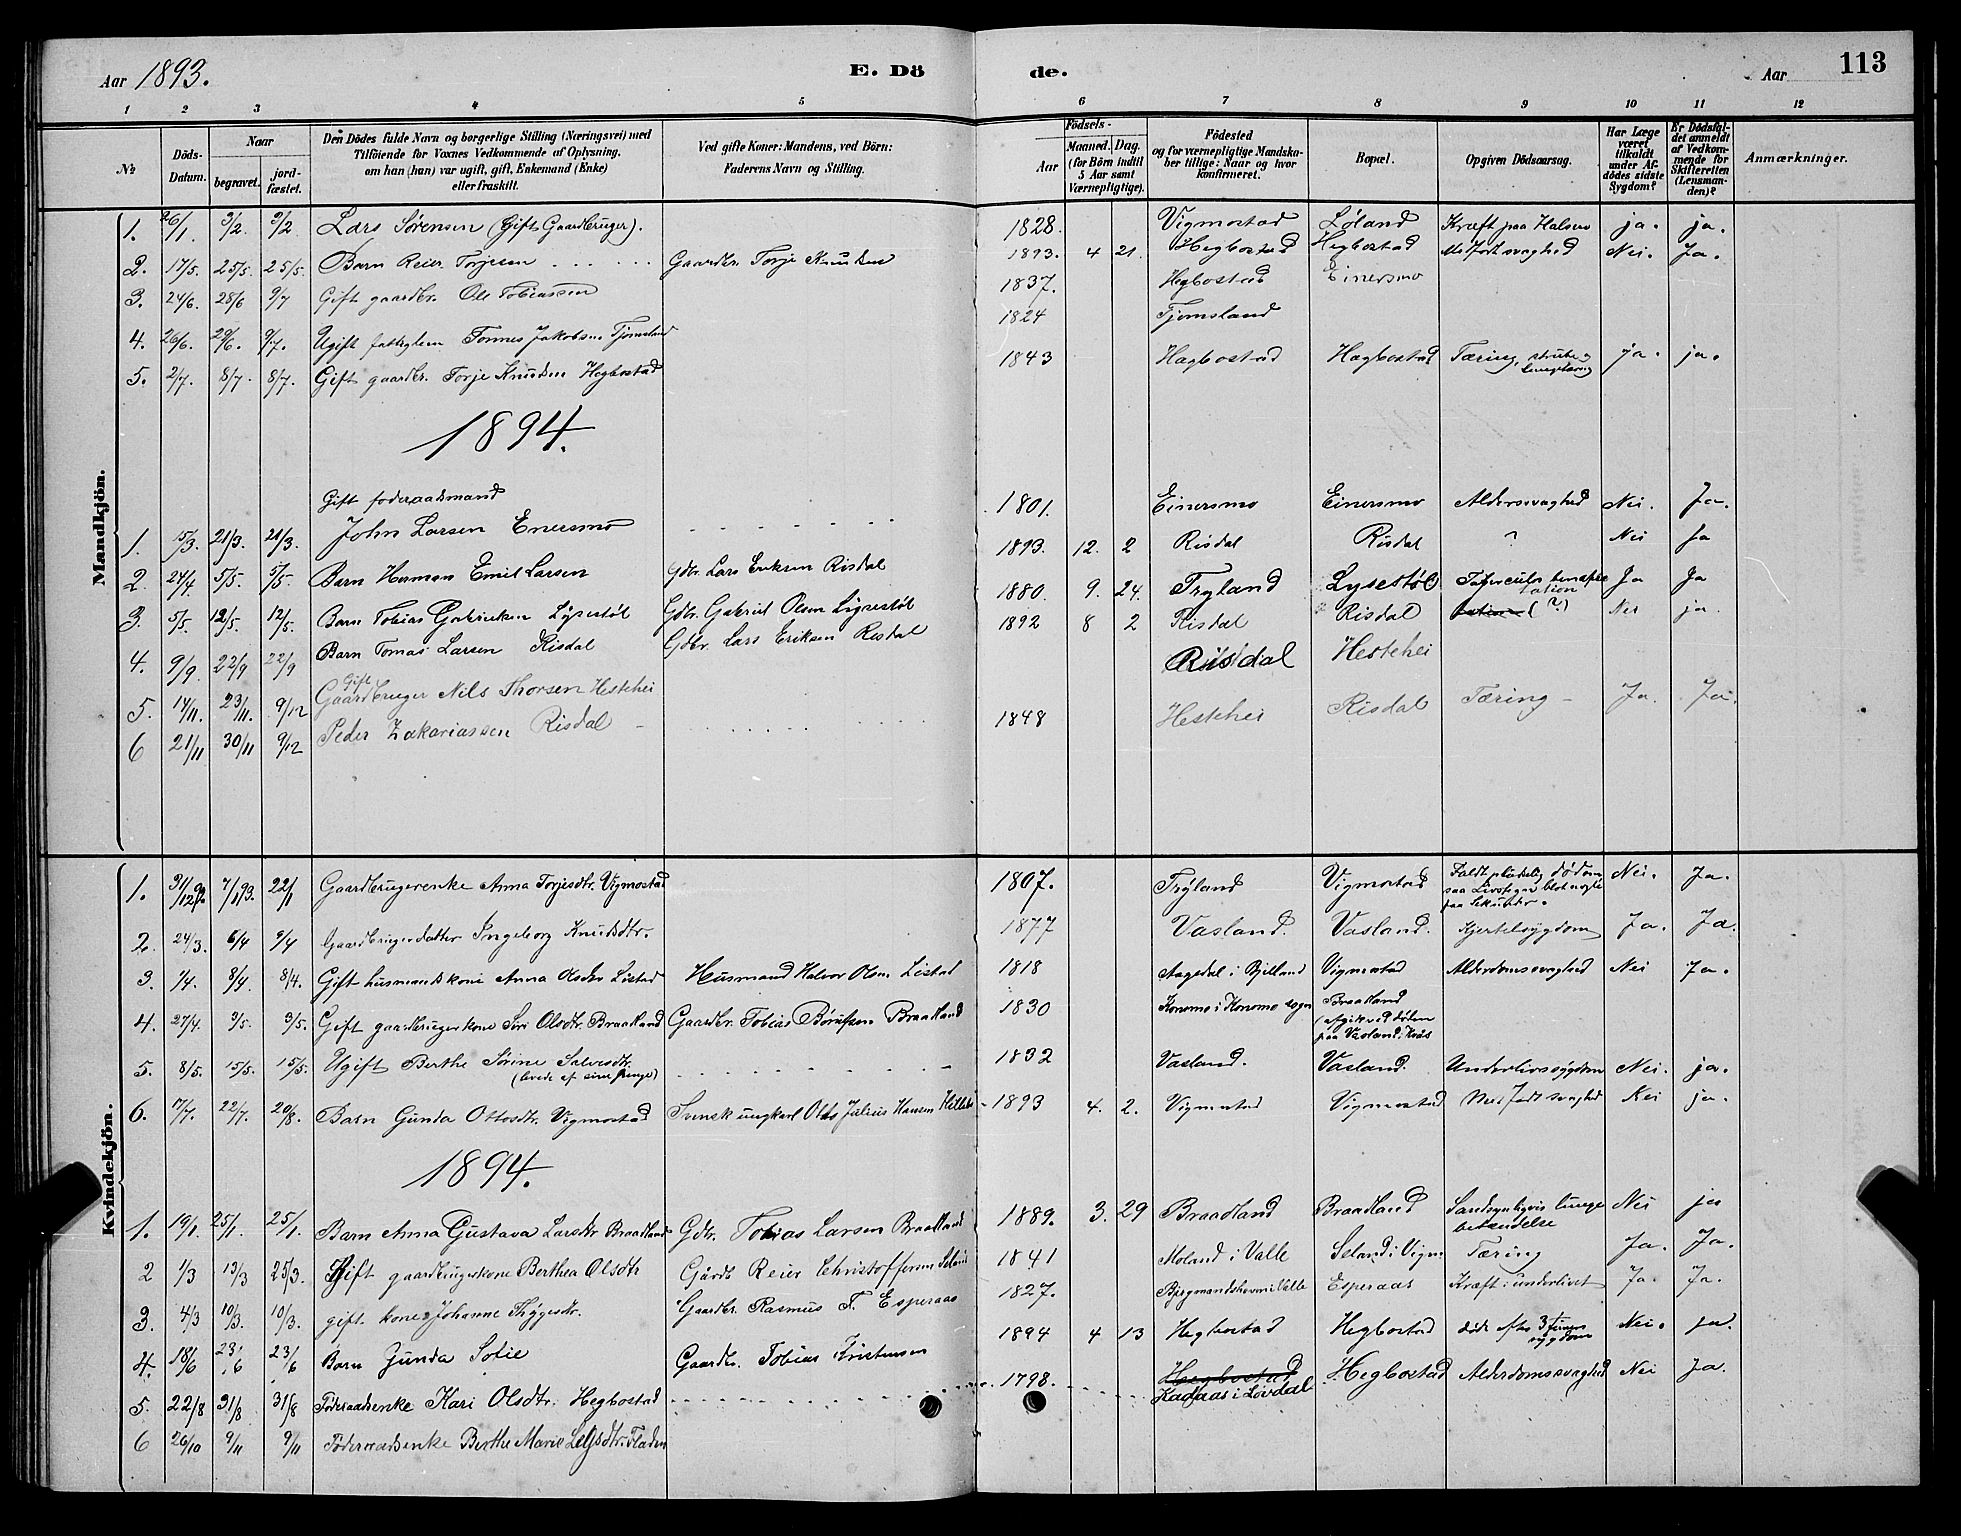 Aar 1893. E. Döde. Aar 113
1 2 3 4 5 6 7 8 9 10 11 12
№ Döds-Datum. Naar begravet. jordfæstet. Den Dödes fulde Navn og borgerlige Stilling (Næringsvei) med Tilföiende for Voxnes Vedkommende af Oplysning, om han (hun) var ugift, gift, Enkemand (Enke) eller fraskilt. Ved gifte Koner: Mandens, ved Börn: Faderens Navn og Stilling. Födsels- Aar Maaned. Dag. (for Börn indtil 5 Aar samt Værnepligtige). Födested og for værnepligtige Mandskaber tillige: Naar og hvor konfirmeret. Bopæl. Opgiven Dödsaarsag. Har Læge været tilkaldt under Afdödes sidste Sygdom? Er Dödsfaldet anmeldt af Vedkommende for Skifteretten (Lensmanden)? Anmærkninger.
Mandkjön.
1. 26/1 3/2 3/2 Lars Sørensen (Gift Gaardbruger). 1828. Vigmostad Løland Kræft paa Halsen ja. ja.
2. 17/5. 25/5. 25/5. Barn Reier Torjesen Gaardbr. Torje Knudsen 1893. 4 21. Hegbostad Hegbostad Medfødt svaghed Nei. Ja.
3. 24/6. 28/6 9/7 Gift gaardbr. Ole Tobiassen 1837. Hegbostad Einersmo
4. 26/6. 29/6. 9/7. Ugift fattiglem Tønnes Jakobsen Tjomsland 1824 Tjomsland
5. 2/7. 8/7. 8/7. Gift gaardbr. Torje Knudsen Hegbostad 1843 Hægbostad Hægbostad Tæring, strube- ja. ja.
1894.
Gift føderaadsmand
1. 15/3. 21/3. 21/3. John Larsen Enersmo 1801. Einersmo Einersmo Alderssvaghed Nei. Ja.
2. 24/4 5/5. 5/5. Barn Herman Emil Larsen Gdbr. Lars Eriksen Risdal 1893. 12. 2 Risdal Risdal ? Nei Ja
3. 5/5. 12/5. 12/5. Barn Tobias Gabrielsen Lysestøl Gdbr. Gabriel Olsen Lysestøl 1880. 9. 24. Tryland Lysestøl Ja Ja
4. 9/9. 22/9 22/9 Barn Tomas Larsen Risdal Gdbr. Lars Eriksen Risdal 1892 8 2 Risdal Risdal (?) Nei ja.
5. 14/11. 23/11. 9/12 Gift Gaardbruger Nils Thorsen Hestehei Risdal Hestehei
6 21/11 30/11 9/12 Peder Zakariassen Risdal 1848 Hestehei Risdal Tæring Ja. Ja.
Kvindekjön.
1. 31/12 92. 7/1 93. 22/1 Gaardbrugerenke Anna Torjesdtr. Vigmostad 1807. Tryland Vigmostad Faldt pludselig død om saa Livstegn blot nogle faa Sekunder. Nei. Ja.
2. 24/3. 6/4 9/4 Gaardbrugerdatter Ingeborg Knudsdtr. 1877 Vasland. Vasland. Kjertelsygdom Ja. Ja.
3. 1/4. 8/4 8/4. Gift husmandskone Anna Olsdtr Listad Husmand Halvor Olsen Listad 1818 Aagedal i Bjelland Vigmostad Alderdomssvaghed Nei Ja.
4. 27/4. 3/5. 3/5. Gift gaardbrugerkone Siri Olsdtr. Braadland Gaardbr. Tobias Børufsen Braadland 1830 Konsmo i Konsmo sogn Braadland (afgik ved døden paa Vasland i Kvås
5. 8/5. 15/5. 15/5. Ugift Berthe Sørine Salvesdtr. (levede af sine penge) 1832 Vasland. Vasland. Underlivssygdom Nei. ja.
6. 7/7. 22/7. 20/8. Barn Gunda Ottosdtr. Vigmostad Svensk ungkarl Otto Julius Hansen 1893 4. 2. Vigmostad Vigmostad Medfødt svaghed Nei ja.
1894.
1. 19/1. 25/1. 25/1. Barn Anna Gustava Larsdtr Braadland Gdbr. Tobias Larsen Braadland 1889. 3. 29 Braadland Braadland Sandsynligvis lungebetændelse Nei ja
2 1/3 13/3 25/3. Gift gaardbrugerkone Berthea Olsdtr Gårdb Reier Christoffersen Seland 1841 Moland i Valle Seland i Vigm. Tæring Ja. Ja.
3. 4/3 10/3. 10/3. gift kone Johanne Thygesdtr. Gaardbr. Rasmus T. Esperaas 1827. Valle Esperaas Kræft i underlivet Ja. Ja.
4. 18/6 23/6 23/6 Barn Gunda Sofie Gaardbr. Tobias Kristensen 1894 4 13 Hegbostad Hegbostad døde efter 3 timers sygdom Nei. ja.
5. 22/8 31/8 31/8 Føderaadsenke Kari Olsdtr. Hegbostad 1798. Hegbostad Kadaas i Lovdal Hegbostad Alderdomssvaghed Nei Ja.
6 26/10 9/11 9/11 Føderaadsenke Berthe Marie